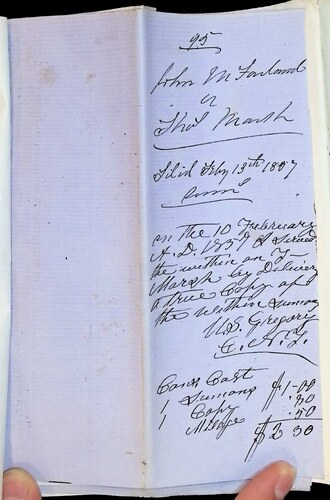 95
John McFarland
v
Thos Marsh
Filed Feby 13th 1857
on The 10 Frebruary
A. D. 1857 I Served
the within on T
Marsh by Deliver
a true Copy of
the within Sumons
U.S. Gregory
C. N. T.
Cons Cost
1 Sumons $1-00
1 Copy .30
Milage .50
$2 30